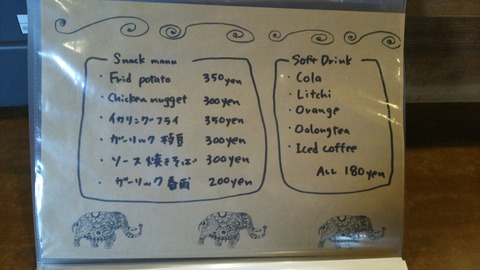 Snack manu
・Frid potato 350yen
・Chicken nugget 300yen
・イカリングフライ 350yen
・ガーリック枝豆 300yen
・ソース焼きそば 300yen
・ガーリック 200yen
Soft Drink
・Cola
・Litchi
・Orange
・Oolongtea
・Iced coffee
ALL 180yen